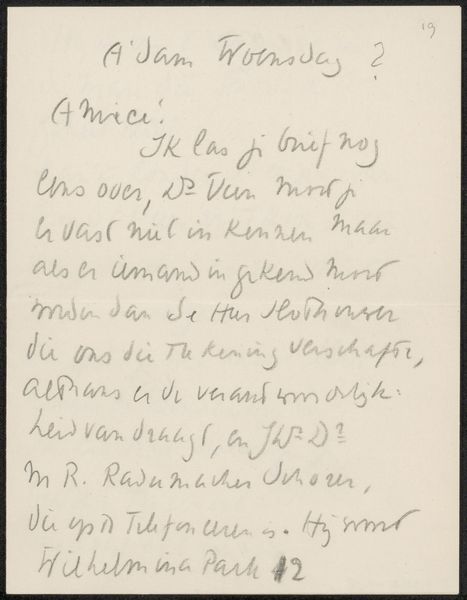 19
A'dam Woensdag ?
Amice!
Ik las je brief nog
eens over, Dr Veen moet je
er vast niet in kennen maar
als er iemand in gekend moet
worden dan de Heer
die ons die tekening verschafte,
althans er de verantwoordelijk=
heid van draagt, en Dr
M R. Radermacher Schorer,
die op te telefoneren is. Hij woont
Wilhelmina Park 12